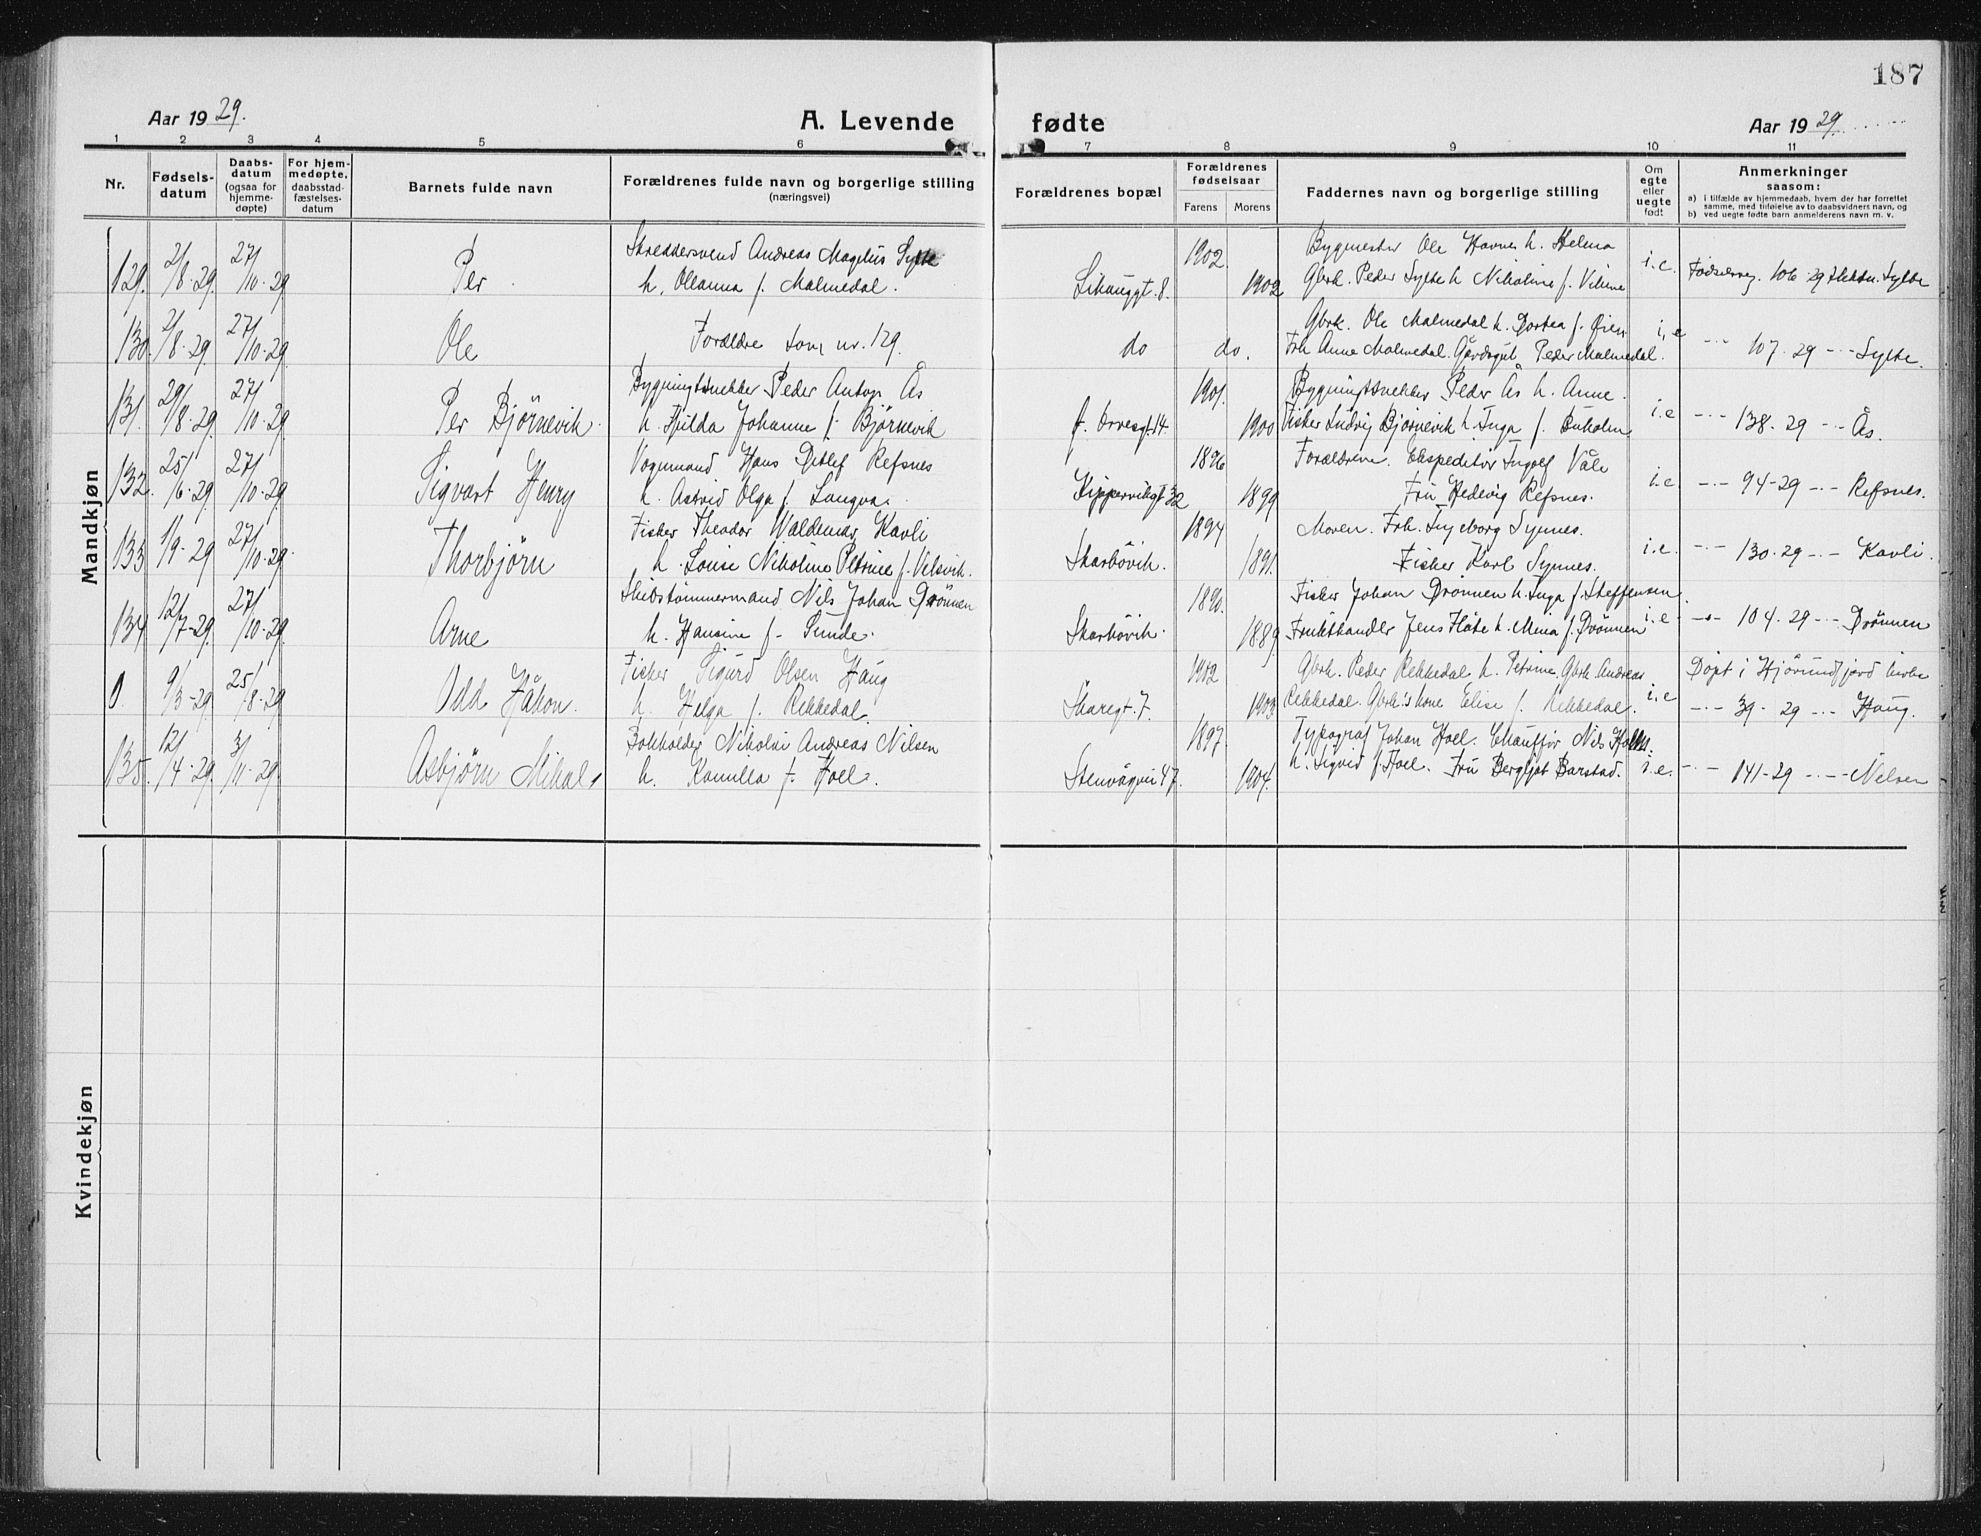 187
Aar 1929.
A. Levende fødte
Aar 1929
1 2 3 4 5 6 7 8 9 10 11
Nr.
Fødsels-datum
Daabs-datum (ogsaa for hjemme-døpte)
For hjem-medøpte, daabsstad-fæstelses-datum
Barnets fulde navn
Forældrenes fulde navn og borgerlige stilling (næringsvei)
Forældrenes bopæl
Forældrenes fødselsaar
Farens Morens
Faddernes navn og borgerlige stilling
Om egte eller uegte født
Anmerkninger saasom:
a) i tilfælde av hjemmedaab, hvem der har forrettet samme, med tilføielse av to daabsvidners navn, og
b) ved uegte fødte barn anmelderens navn m. v.
Mandkjøn
129. 2/8-29. 27/10-29 Per
Skreddersvend Andreas Magnus Sylte
h. Oleanna f. Malmedal.
1902. 1902
Bygmester Ole Havnes h. Helma
Gbrk. Peder Sylte h. Nikoline f. Viken
i.e. Fødselsreg. 106-29 Sylte
130. 2/8-29. 27/10-29. Ole
Forældre som nr. 129.
do do.
Gbrk. Ole Malmedal h. Dortea f. Øien
Frk Anne Malmedal. Gårdsgut Peder Malmedal.
i.e -"- 107-29 -"- Sylte.
131. 29/8-29. 27/10-29 Per Björnevik
Bygningssnekker Peder Anton Ås
h. Hilda Johanne f. Björnevik
14. 1901. 1900
Bygningssnekker Peder Ås h. Anne.
Fisker Ludvig Björnevik h. Inga f. Buholm
i.e -"- 138-29 -"- Ås.
132. 25/6-29. 27/10-29. Sigvart Henry
Vognmand Hans Detlef Refsnes
h. Astrid Olga f. Longva.
Kippervikgt 32 1896 1899
Forældrene. Ekspeditör Ingolf Våle
Fru Hedevig Refsnes.
i.e. -"- 94-29 -"- Refsnes.
133 1/9-29 27/10-29. Thorbjörn
Fisker Theodor Waldemar Kavli
h. Louise Nikoline Petrine f. Velsvik.
Skarbövik. 1894 1891.
Moren. Frk. Ingeborg Synnes.
Fisker Karl Synnes.
i.e. -"- 130-29 -"- Kavli.
134 12/7-29. 27/10-29. Arne
Skibstömmermand Nils Johan Drönnen
h. Hansine f. Sunde.
Skarbövik. 1890. 1889
Fisker Johan Drönnen h. Inga f. Steffensen
Frukthandler Jens Flöte h. Mena f. Drönnen
i.e -"- 104-29 -"- Drönnen
0 9/3-29. 25/8-29 Odd Håkon.
Fisker Sigurd Olsen Haug
h. Helga f. Rekkedal.
Skaregt. 7. 1902 1903
Gbrk. Peder Rekkedal h. Petrine Gbrk Andreas
Rekkedal. Gbrk's kone Elise f. Rekkedal.
i.e Döpt i Hjörundfjord kirke
-"- 39-29 -"- Haug.
135. 12/4-29. 3/11-29 Asbjörn Mikal
Bokholder Nikolai Andreas Nilsen
h. Kamilla f. Hoel.
Stenvågvei 47. 1897. 1904.
Typograf Johan Hoel. Chaufför Nils
h. Sigrid f. Hoel. Fru Bergljot Barstad.
i.e. -"- 141-29 -"- Nilsen
Kvindekjøn